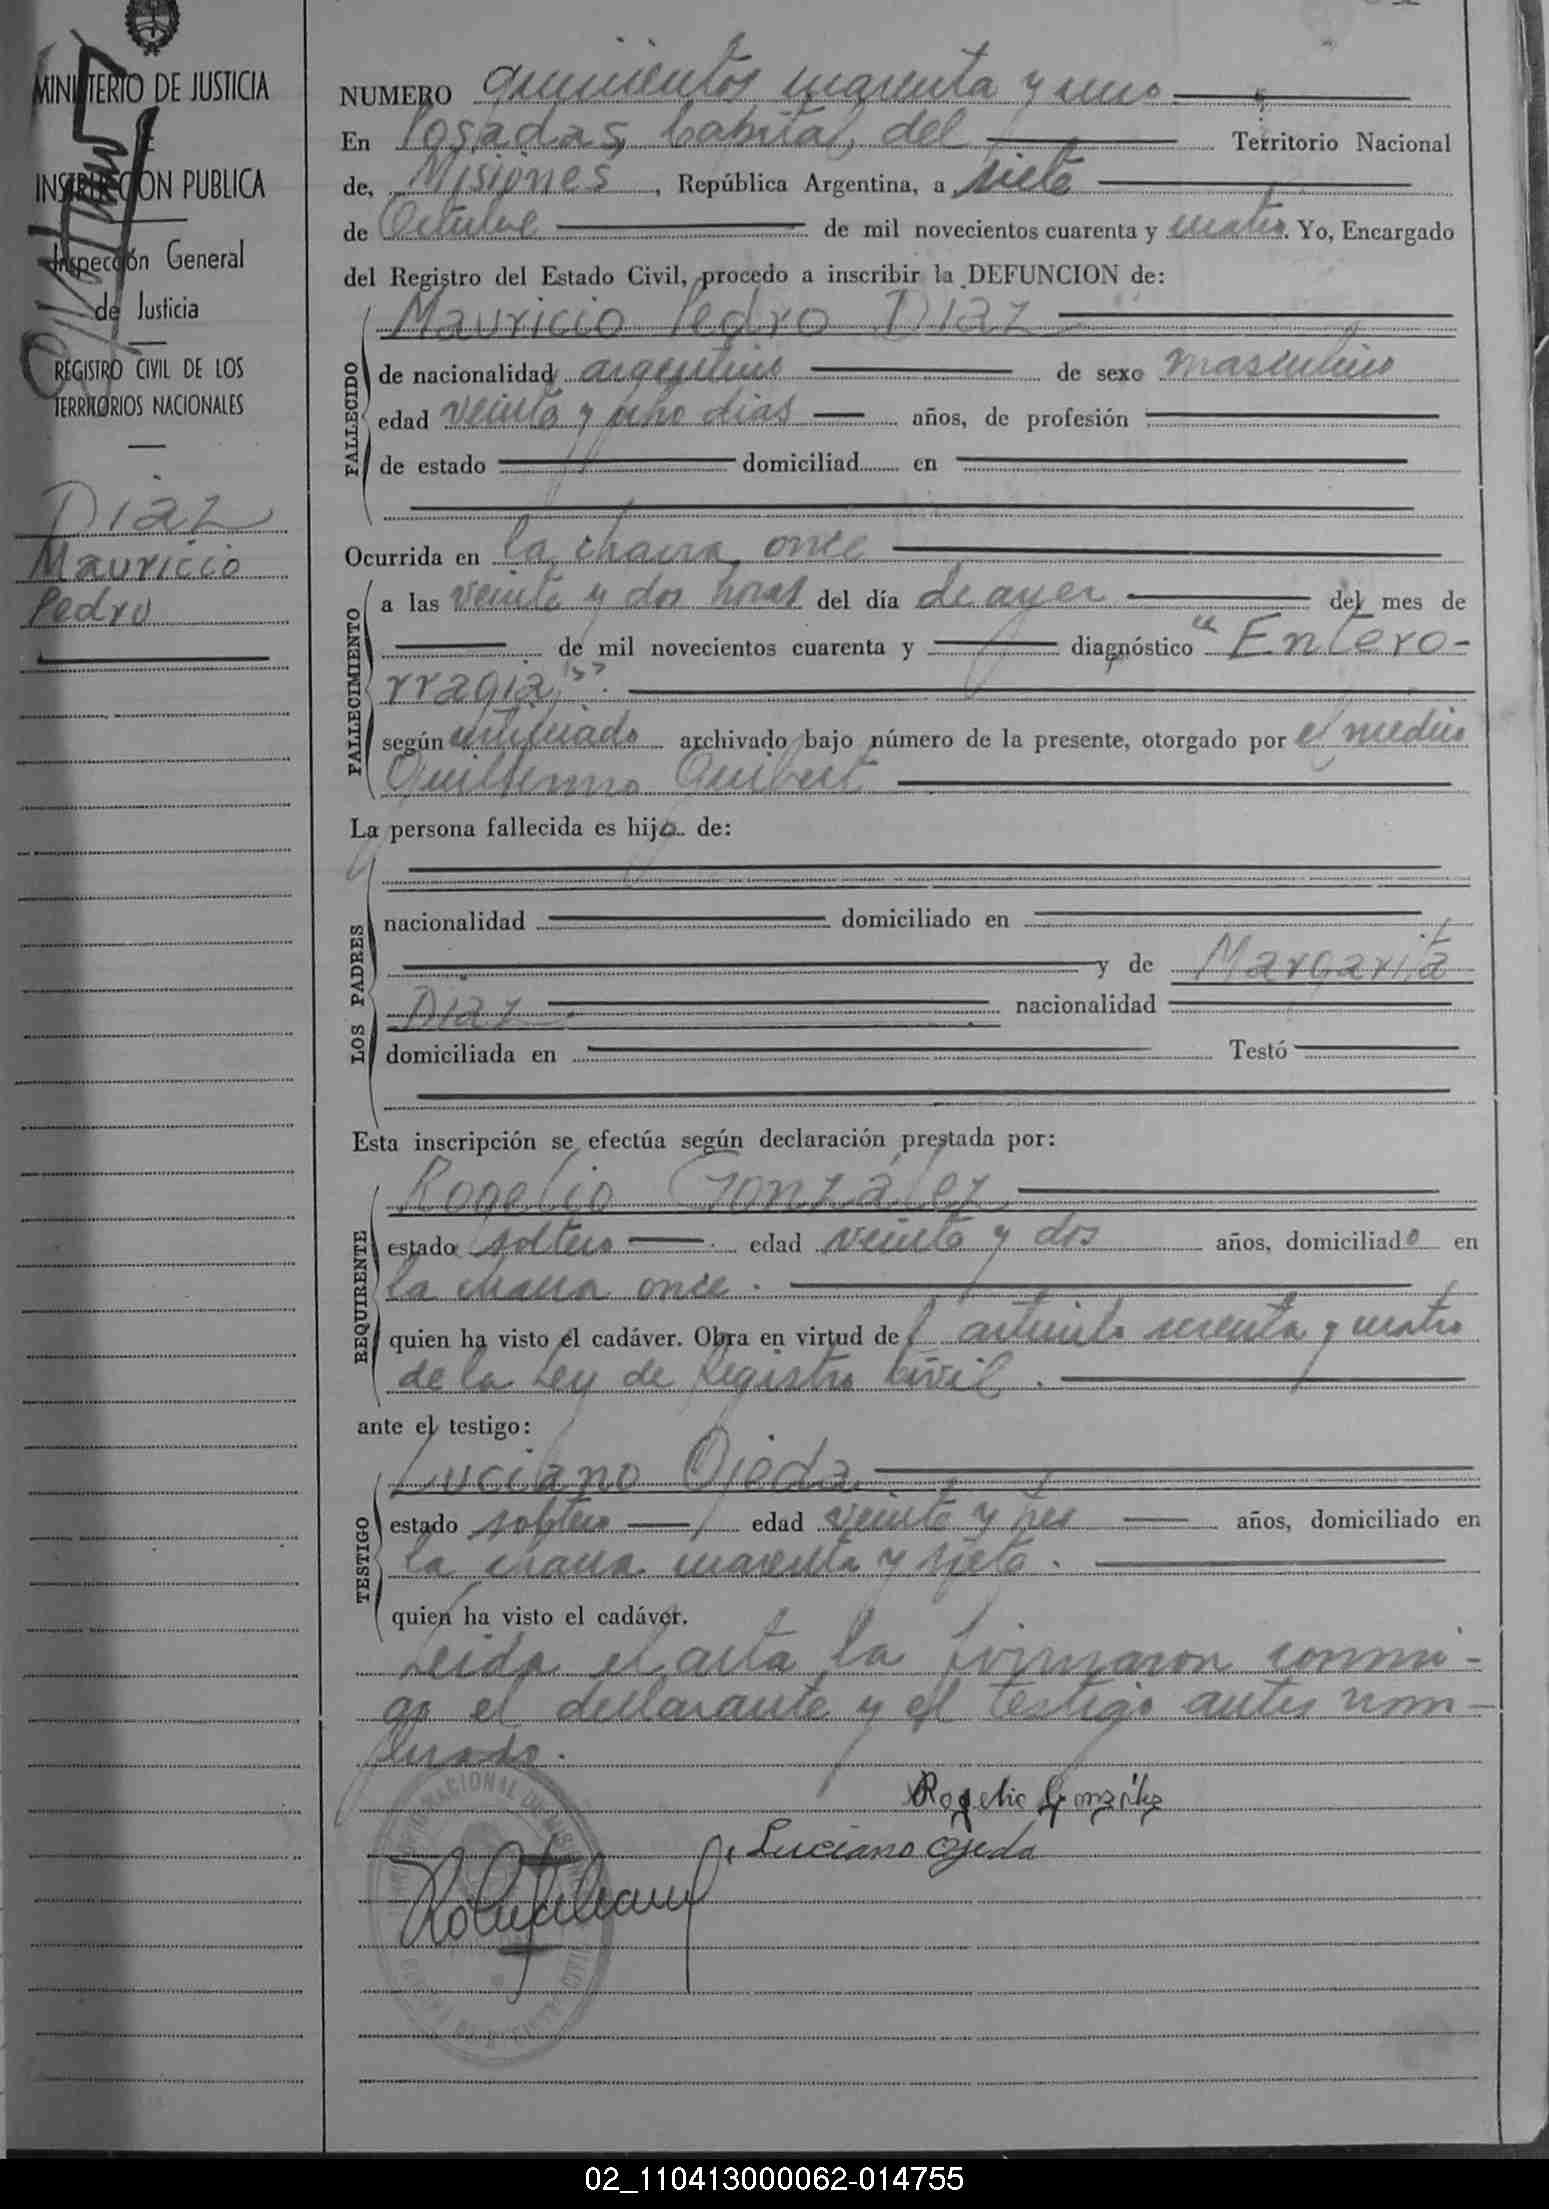 MINISTERIO DE JUSTICIA
E
INSTRUCCION PUBLICA
Inspección General
de Justicia
REGISTRO CIVIL DE LOS
TERRITORIOS NACIONALES
Diaz
Mauricio
Pedro
NUMERO quinientos cuarenta y uno
En Posadas, Capital, del Territorio Nacional
de, Misiones, República Argentina, a siete
de Octubre de mil novecientos cuarenta y cuatro. Yo, Encargado
del Registro del Estado Civil, procedo a inscribir la DEFUNCION de:
Mauricio Pedro Diaz
FALLECIDO
de nacionalidad argentino de sexo masculino
edad veinte y ocho dias años, de profesión
de estado domiciliad en
Ocurrida en la chacra once
FALLECIMIENTO
a las veinte y dos horas del día de ayer del mes de
de mil novecientos cuarenta y diagnóstico "Entero-
rragia".
según certificado archivado bajo número de la presente, otorgado por el medico
Guillermo Guibert
La persona fallecida es hijo de:
LOS PADRES
nacionalidad domiciliado en
y de Margarita
Diaz nacionalidad
domiciliada en Testó
Esta inscripción se efectúa según declaración prestada por:
Rogelio González
REQUIRENTE
estado soltero edad veinte y dos años, domiciliado en
la chacra once.
quien ha visto el cadáver. Obra en virtud del articulo sesenta y cuatro
de la Ley de Registro Civil.
ante el testigo:
Luciano Ojeda
TESTIGO
estado soltero edad veinte y tres años, domiciliado en
la chacra cuarenta y siete.
quien ha visto el cadáver.
Leida el acta la firmaron conmi-
go el declarante y el testigo antes nom-
brado.
Rogelio González
Luciano Ojeda
02_110413000062-014755